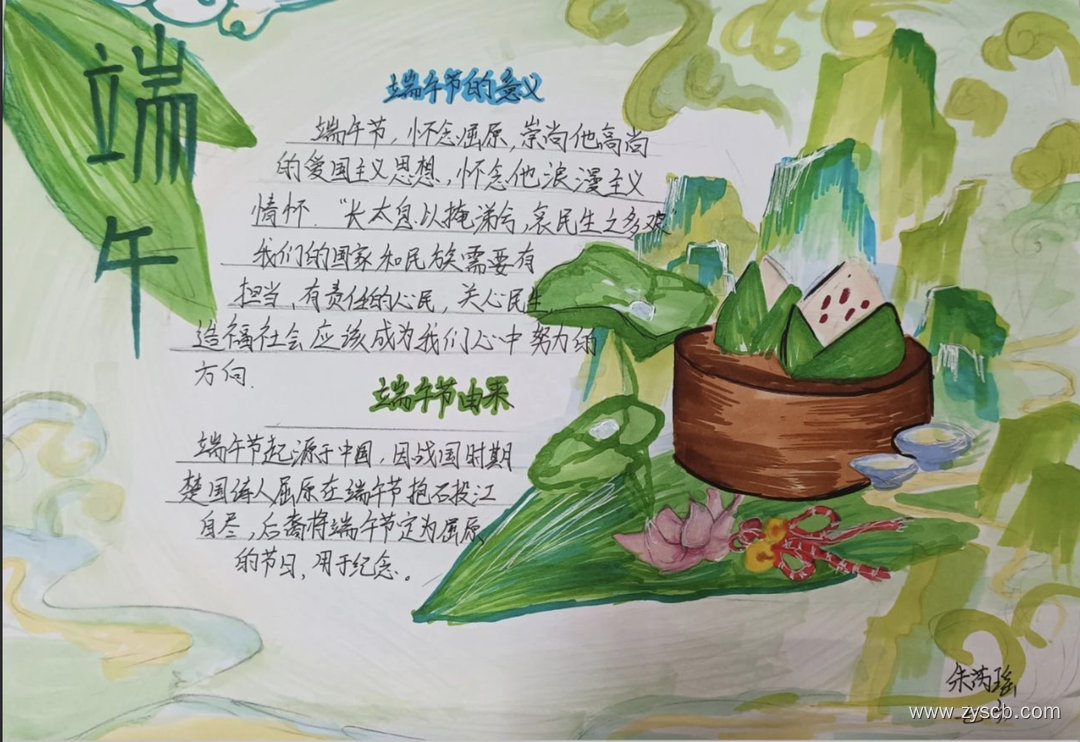 端午
端午节的意义
端午节，怀念屈原，崇尚他高尚
的爱国主义思想，怀念他浪漫主义
情怀.“长太息以掩涕兮，哀民生之多艰”
我们的国家和民族需要有
担当，有责任的心民，关心民生
造福社会应该成为我们心中努力的
方向.
端午节由来
端午节起源于中国，因战国时期
楚国诗人屈原在端午节抱石投江
自尽，后裔将端午节定为屈原
的节日，用于纪念。
www.zyscb.com